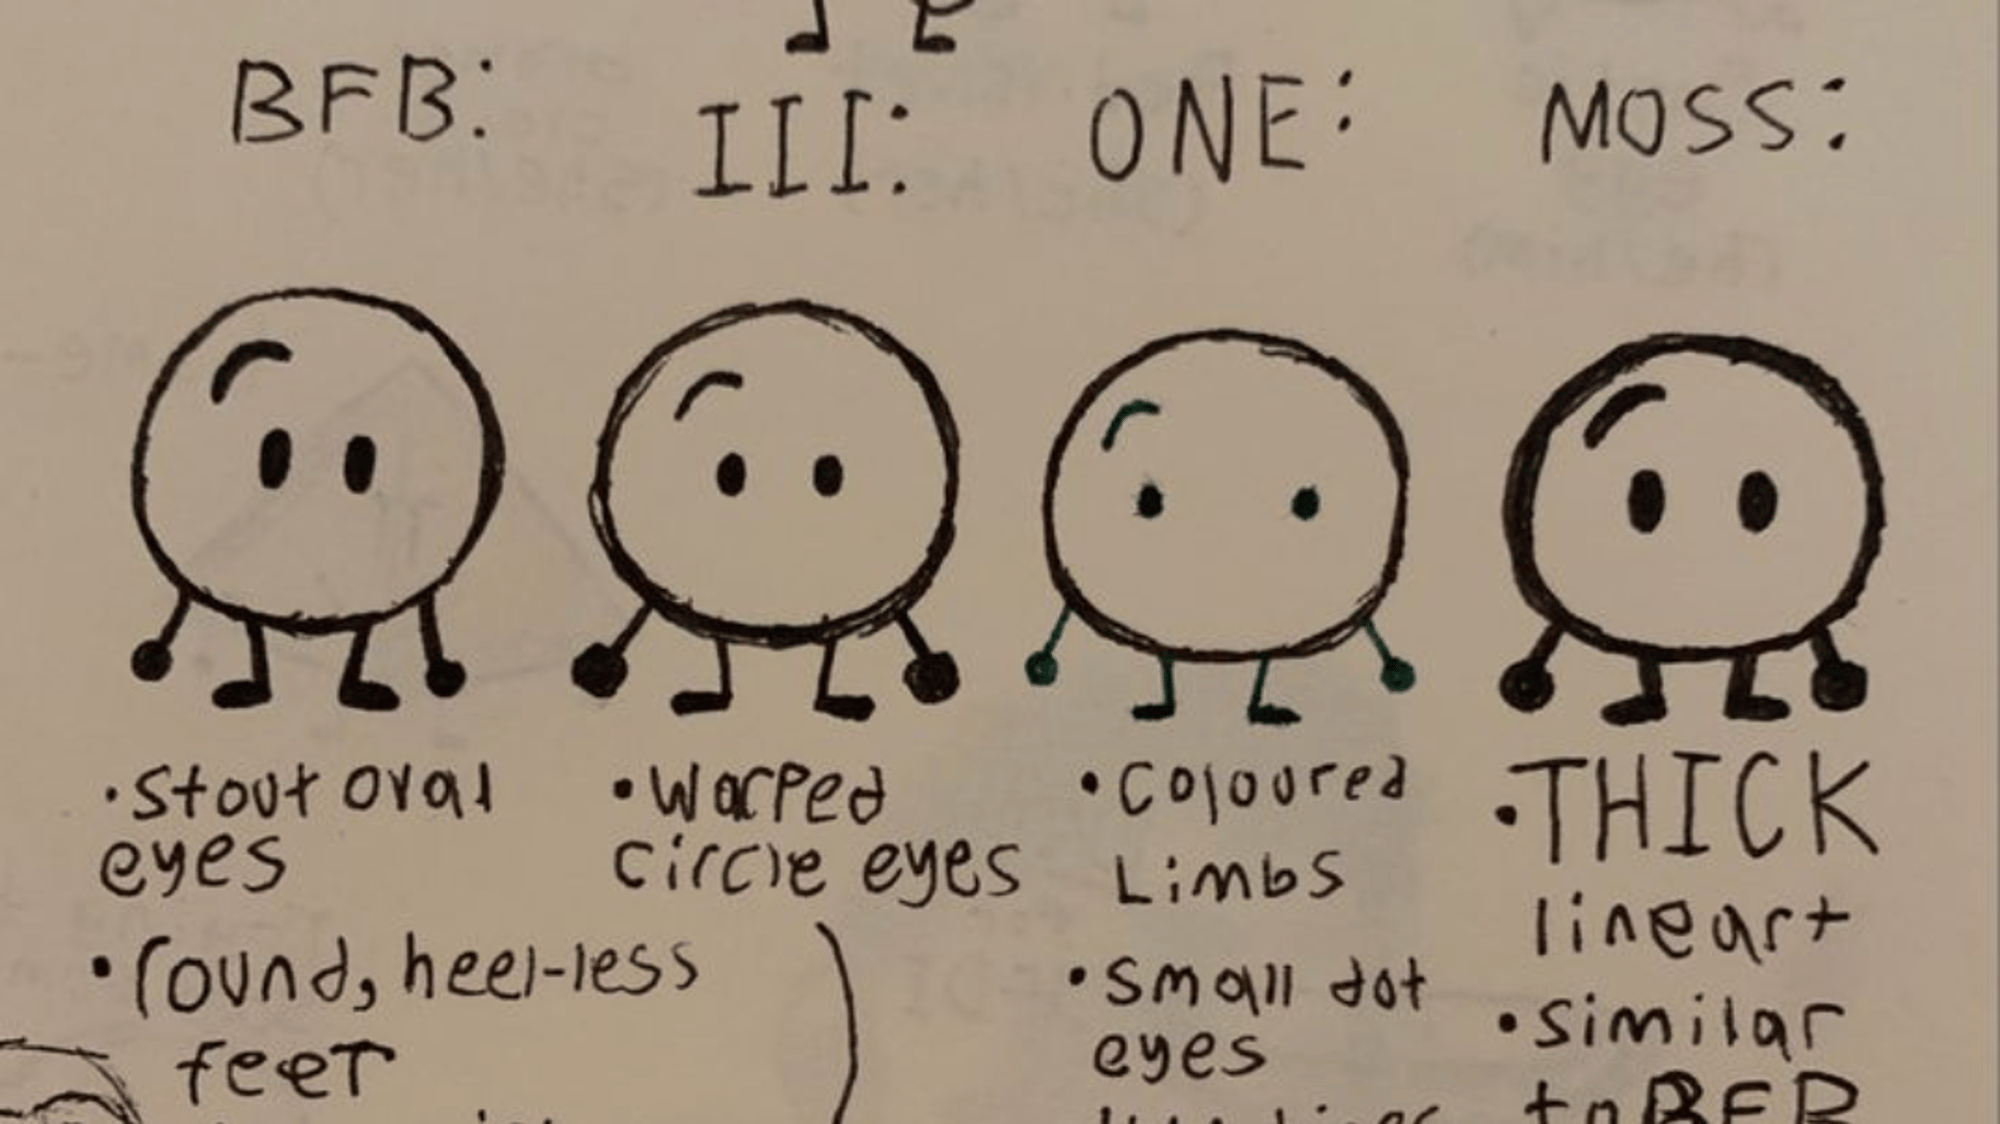 BFB:
III:
ONE:
MOSS:
•Stout oval
eyes
•round, heel-less
feet
•Warped
circle eyes
•Coloured
Limbs
•Small dot
eyes
•THICK
lineart
•Similar
to BFB